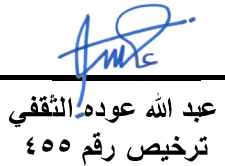 عبد الله عوده الثقفي
ترخيص رقم ٤٥٥